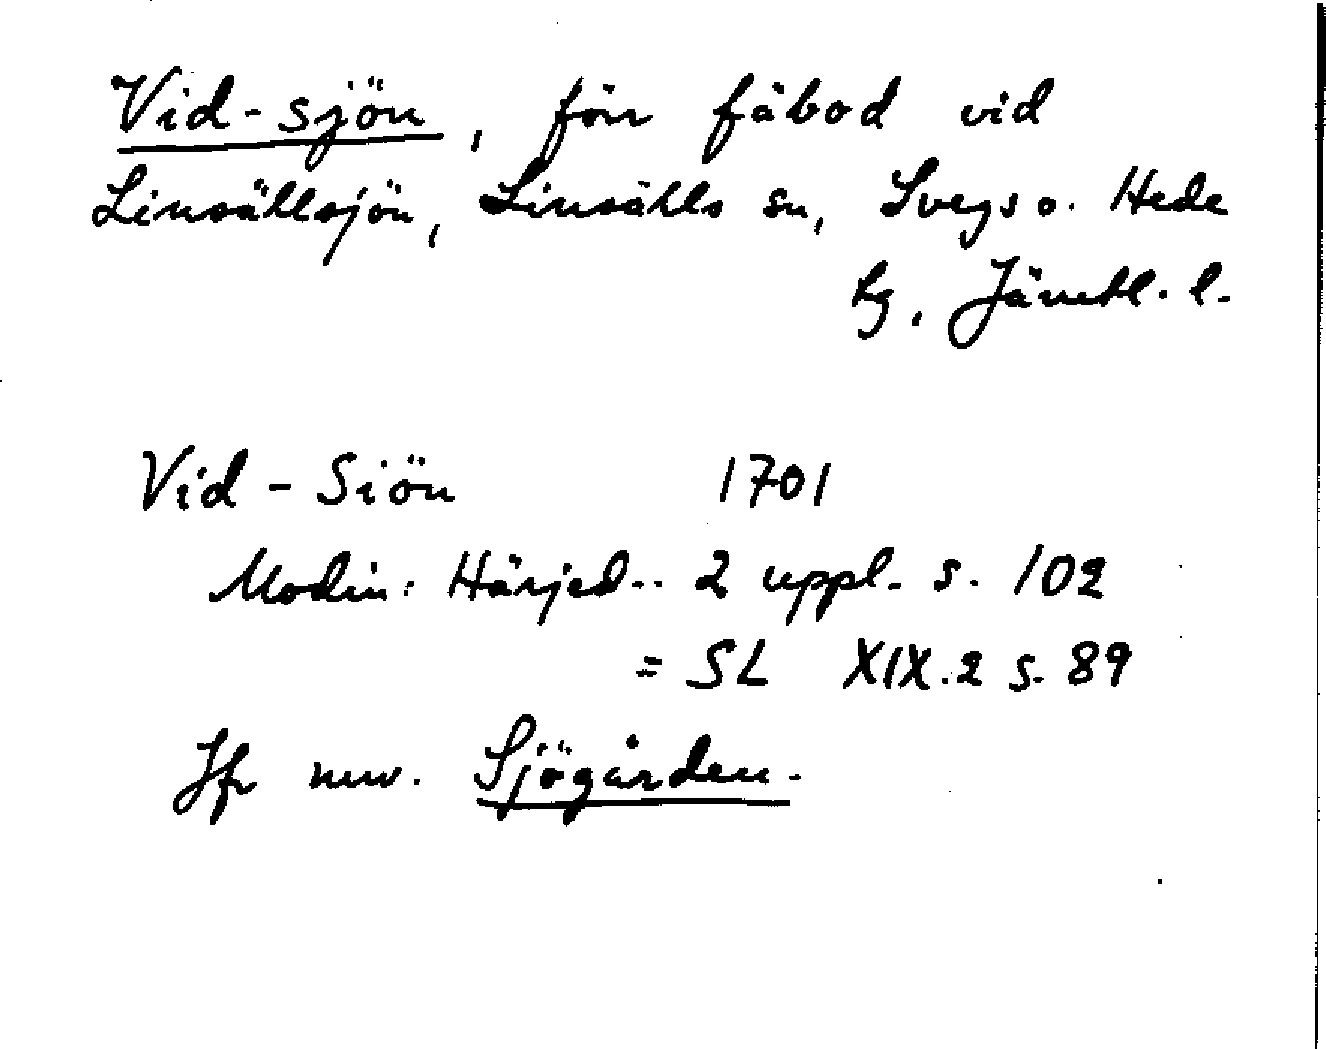 Vid-sjön, förr fäbod vid
Linsällsjön, Linsälls sn, Svegs o. Hede
tg, Jämtl. l.
Vid - Siön 1701
Modin: Härjed.. 2 uppl. s. 102
= SL XIX.2 s. 89
Jfr nuv. Sjögården.